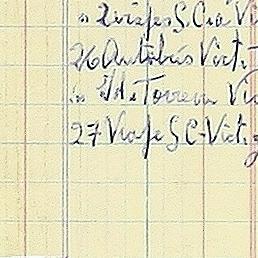 " 2 viajes S. C a Vi
26 Autobús Vict
in Id a Torrem Vi
27 Viaje S C-Victo